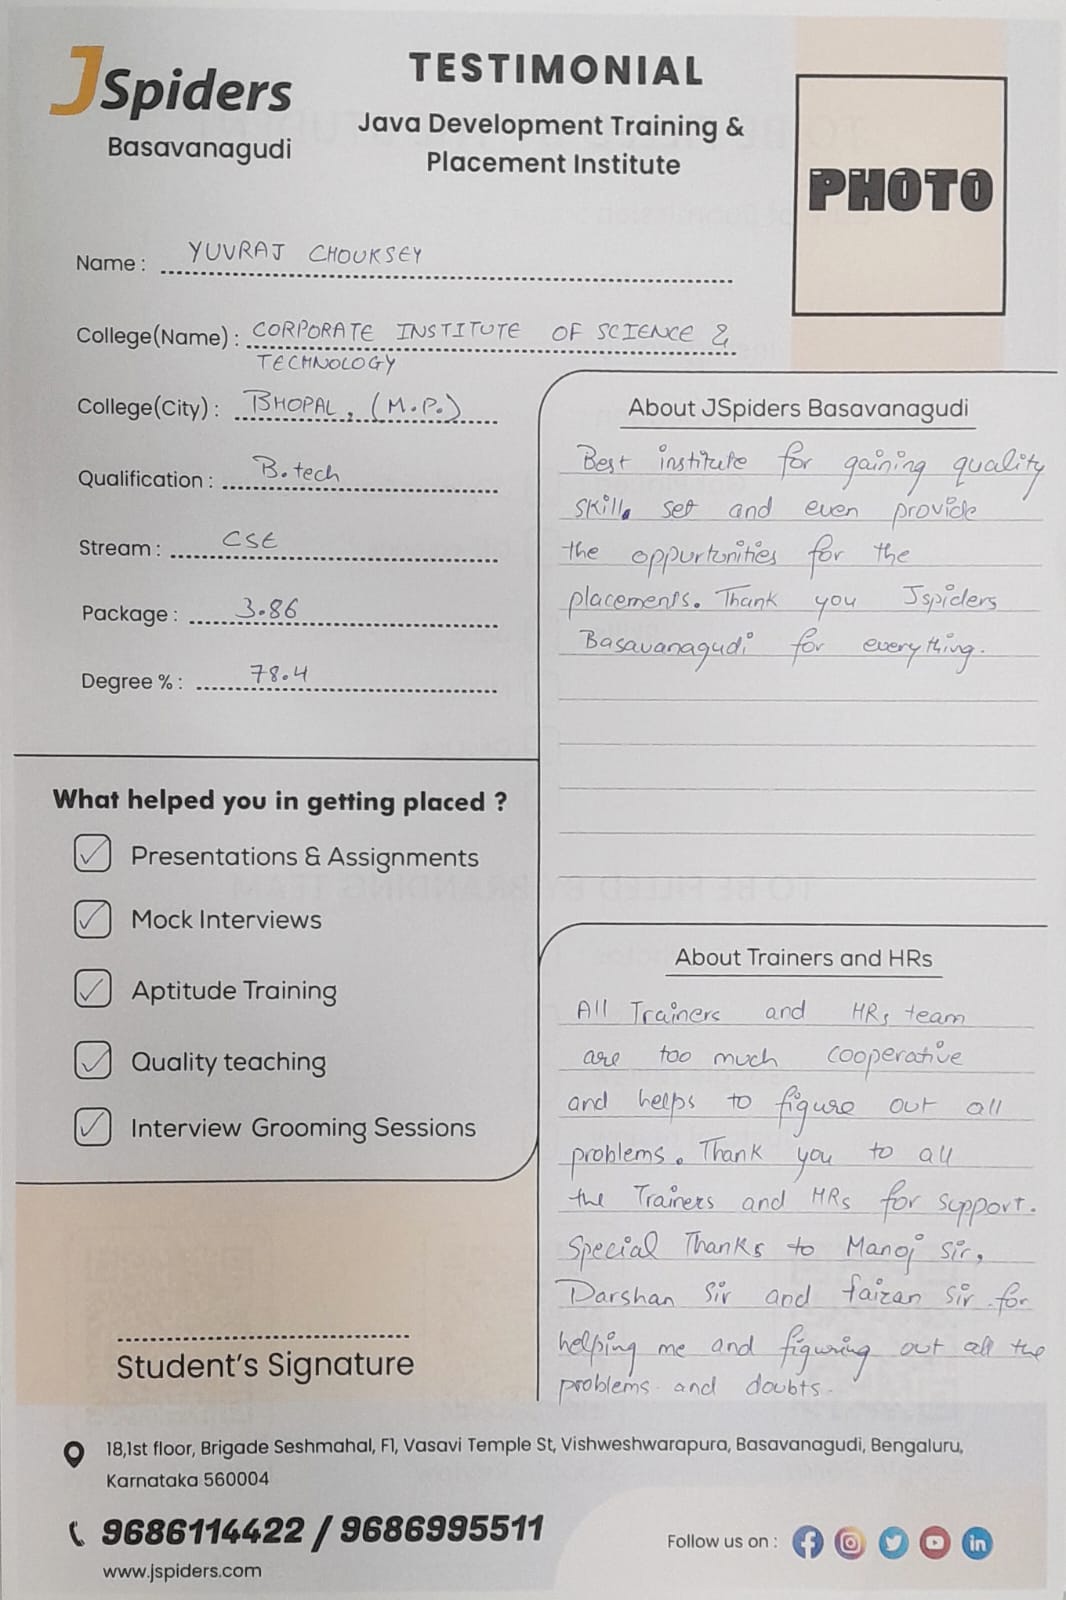 JSpiders
Basavanagudi
TESTIMONIAL
Java Development Training &
Placement Institute
PHOTO
Name : YUVRAJ CHOUKSEY
College(Name) : CORPORATE INSTITUTE OF SCIENCE &
TECHNOLOGY
College(City) : BHOPAL, (M.P.)
Qualification : B.tech
Stream : CSE
Package : 3.86
Degree % : 78.4
What helped you in getting placed ?
Presentations & Assignments
Mock Interviews
Aptitude Training
Quality teaching
Interview Grooming Sessions
Student's Signature
About JSpiders Basavanagudi
Best institute for gaining quality
skill set and even provide
the oppurtunities for the
placements. Thank you Jspiders
Basavanagudi for everything.
About Trainers and HRs
All Trainers and HRs team
are too much cooperative
and helps to figure out all
problems. Thank you to all
the Trainers and HRs for support.
Special Thanks to Manoj Sir,
Darshan Sir and faizan Sir for
helping me and figuring out all the
problems and doubts.
18,1st floor, Brigade Seshmahal, F1, Vasavi Temple St, Vishweshwarapura, Basavanagudi, Bengaluru,
Karnataka 560004
9686114422 / 9686995511
www.jspiders.com
Follow us on :